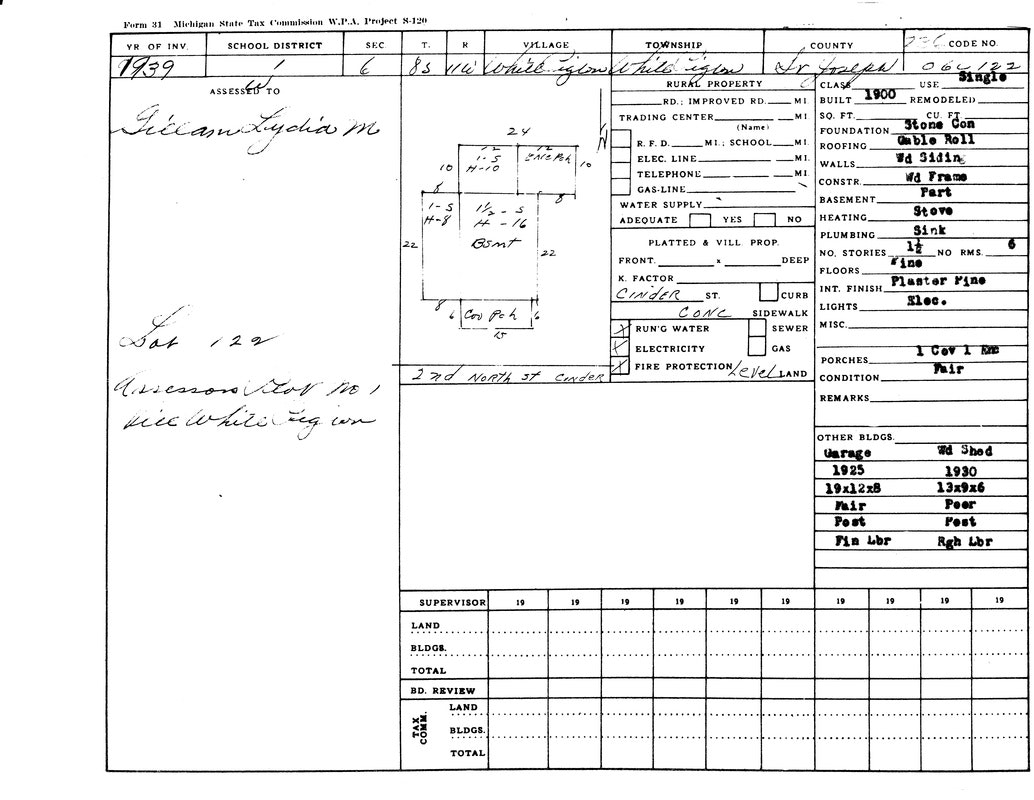 Form 31 Michigan State Tax Commission W.P.A. Project S-120
YR OF INV. SCHOOL DISTRICT SEC. T. R VILLAGE TOWNSHIP COUNTY 236 CODE NO.
1939 1 6 8S 11W White Pigeon White Pigeon St Joseph 06C 122
ASSESSED TO
Gillam Lydia M
Lot 122
Assessors Plat No 1
Vill White Pigeon
24
N
12 12
1-S Enc Pch
H-10
10 10
8 8
1-S 1½-S
H-8 H-16
Bsmt
22 22
8 6 Cov Pch 6
15
2nd North St Cinder
RURAL PROPERTY
RD.; IMPROVED RD. MI.
TRADING CENTER MI.
(Name)
R. F. D. MI.; SCHOOL MI.
ELEC. LINE MI.
TELEPHONE MI.
GAS-LINE
WATER SUPPLY
ADEQUATE YES NO
PLATTED & VILL. PROP.
FRONT. x DEEP
K. FACTOR
Cinder ST. CURB
Conc SIDEWALK
RUN'G WATER SEWER
ELECTRICITY GAS
FIRE PROTECTION Level LAND
CLASS USE Single
BUILT 1900 REMODELED
SQ. FT. CU. FT.
FOUNDATION Stone Con
ROOFING Gable Roll
WALLS Wd Siding
CONSTR. Wd Frame
BASEMENT Part
HEATING Stove
PLUMBING Sink
NO. STORIES 1½ NO RMS. 6
FLOORS Pine
INT. FINISH Plaster Pine
LIGHTS Elec.
MISC.
PORCHES 1 Cov 1 Enc
CONDITION Fair
REMARKS
OTHER BLDGS.
Garage Wd Shed
1925 1930
19x12x8 13x9x6
Fair Poor
Post Post
Fin Lbr Rgh Lbr
SUPERVISOR 19 19 19 19 19 19 19 19 19 19
LAND
BLDGS.
TOTAL
BD. REVIEW
TAX COMM.
LAND
BLDGS.
TOTAL